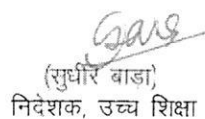 (सुधीर बाडा)
निदेशक, उच्च शिक्षा